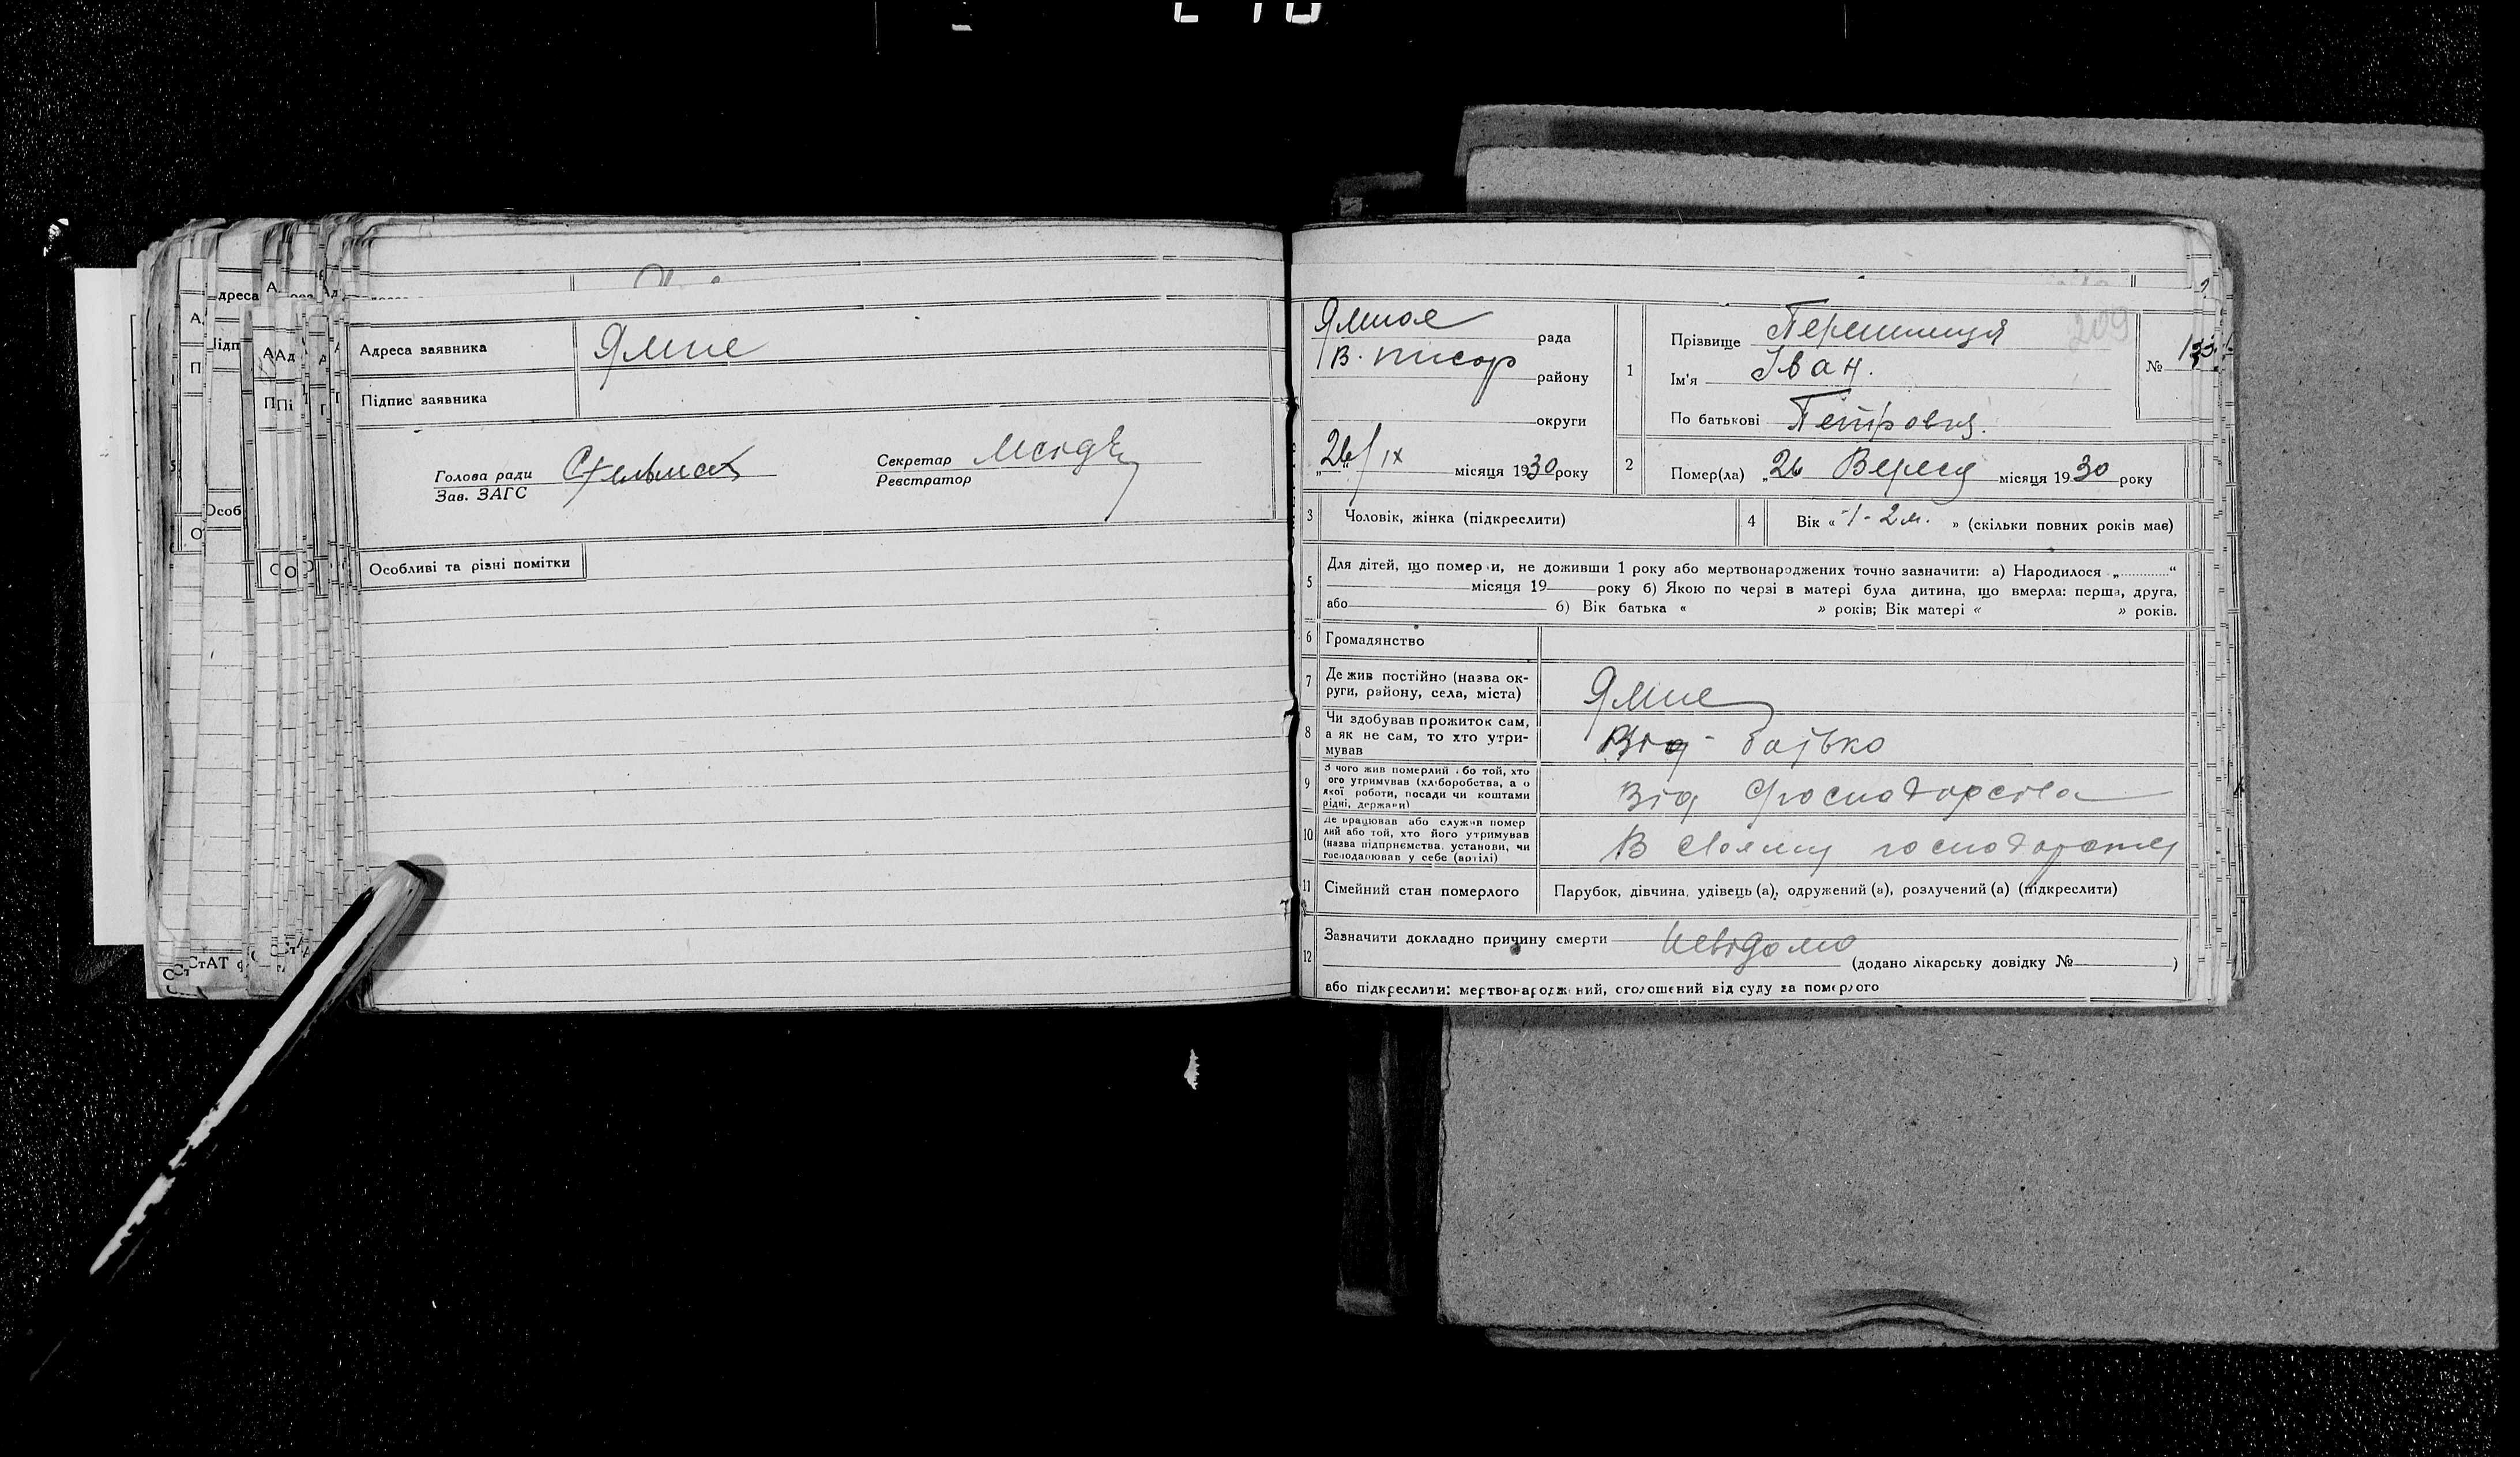 Адреса заявника Ямне
Підпис заявника
Голова ради Стельмах
Зав. ЗАГС
Секретар
Реєстратор
Особливі та різні помітки
рада
В. писар району
округи
„26/IX місяця 1930 року
1
Прізвище
Ім'я Іван.
По батькові Петрович.
№
209
2
Помер(ла) „26 Верес місяця 1930 року
3 Чоловік, жінка (підкреслити)
4 Вік « 1-2 м. » (скільки повних років має)
5 Для дітей, що померли, не доживши 1 року або мертвонароджених точно зазначити: а) Народилося „ “
місяця 19 року б) Якою по черзі в матері була дитина, що вмерла: перша, друга,
або б) Вік батька « » років; Вік матері « » років.
6 Громадянство
7 Де жив постійно (назва ок-
руги, району, села, міста) Ямне
8 Чи здобував прожиток сам,
а як не сам, то хто утри-
мував Від батько
9 З чого жив померлий або той, хто
його утримував (хліборобства, а о
якої роботи, посади чи коштами
рідні, держави) Від господарства
10 Де працював або служив помер
лий або той, хто його утримував
(назва підприємства, установи, чи
господарював у себе (артілі) В своєму
11 Сімейний стан померлого Парубок, дівчина, удівець (а), одружений (а), розлучений (а) (підкреслити)
12 Зазначити докладно причину смерти невідомо
(додано лікарську довідку № )
або підкреслити: мертвонароджений, оголошений від суду за померлого